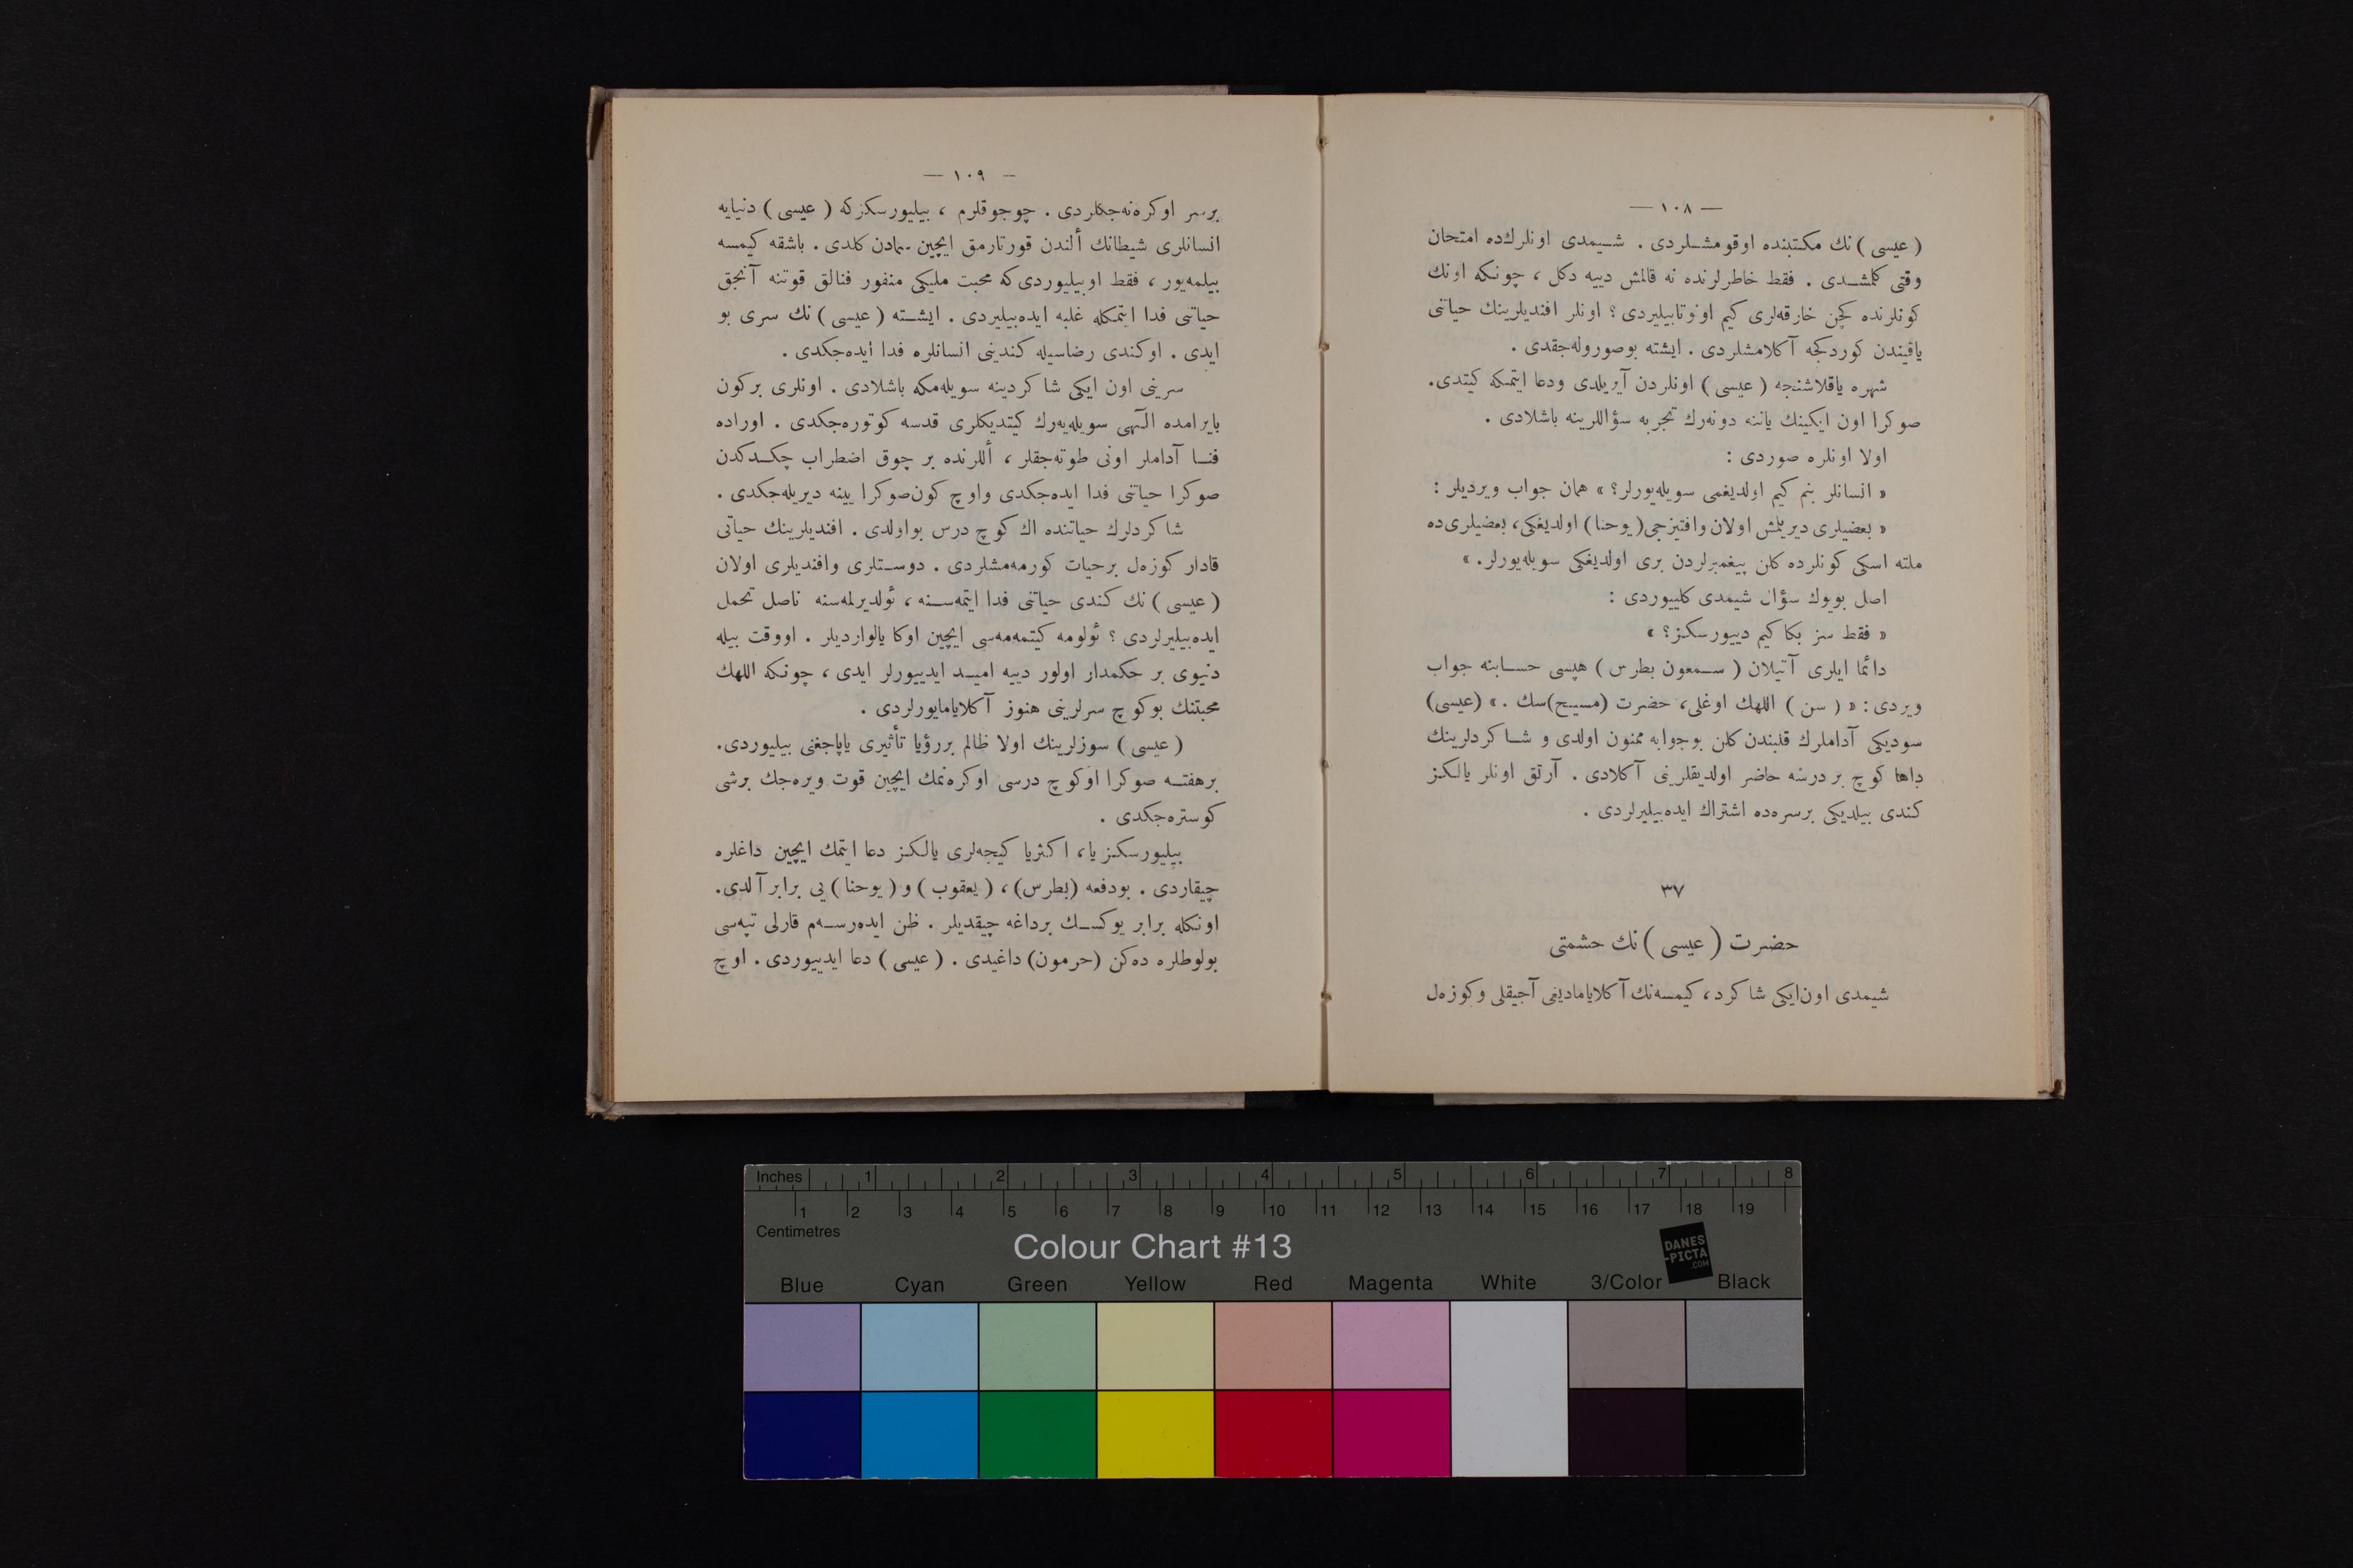 — ١٠٨ —
( عیسی ) نك مكتبنده اوقومشلردی . شیمدی اونلرك‌ده امتحان
وقتی كلمشدی . فقط خاطرلرنده نه قالمش دییه دكل ، چونكه اونك
كونلرنده كچن خارقه‌لری كیم اونوتابیلیردی ؟ اونلر افندیلرینك حیاتنی
یاقیندن كوردكجه آكلامشلردی . ایشته بوصوروله‌جقدی .
شهره یاقلاشنجه ( عیسی ) اونلردن آیریلدی ودعا ایتمكه كیتدی.
صوكرا اون ایكینك یاننه دونه‌رك تجربه سؤاللرینه باشلادی .
اولا اونلره صوردی :
« انسانلر بنم كیم اولدیغمی سویله‌یورلر؟ » همان جواب ویردیلر :
« بعضیلری دیریلمش اولان وافتیزجی(یوحنا) اولدیغكی، بعضیلری‌ده
ملته اسكی كونلرده كلن پیغمبرلردن بری اولدیغكی سویله‌یورلر. »
اصل بویوك سؤال شیمدی كلییوردی :
« فقط سز بكا كیم دییورسكز؟ »
دائما ایلری آتیلان ( سمعون بطرس ) هپسی حسابنه جواب
ویردی : « ( سن ) اللهك اوغلی، حضرت (مسیح)سك . » (عیسی)
سودیكی آداملرك قلبندن كلن بوجوابه ممنون اولدی و شاكردلرینك
داها كوچ بر درسه حاضر اولدیقلرینی آكلادی . آرتق اونلر یالكز
كندی بیلدیكی برسره‌ده اشتراك ایده‌بیلیرلردی .
٣٧
حضرت ( عیسی ) نك حشمتی
شیمدی اون‌ایكی شاكرد، كیمسه‌نك آكلایامادیغی آجیقلی وكوزه‌ل
— ١٠٩ —
برسر اوكره‌نه‌جكلردی . چوجوقلرم ، بیلیورسكزكه ( عیسی ) دنیایه
انسانلری شیطانك ألندن قورتارمق ایچین سمادن كلدی . باشقه كیمسه
بیلمه‌یور ، فقط اوبیلیوردی‌كه محبت ملیكی منفور فنالق قوتنه آنجق
حیاتنی فدا ایتمكله غلبه ایده‌بیلیردی . ایشته ( عیسی ) نك سری بو
ایدی . اوكندی رضاسیله كندینی انسانلره فدا ایده‌جكدی .
سرینی اون ایكی شاكردینه سویله‌مكه باشلادی . اونلری بركون
بایرامده الٓهی سویله‌یه‌رك كیتدیكلری قدسه كوتوره‌جكدی . اوراده
فنا آداملر اونی طوته‌جقلر ، أللرنده بر چوق اضطراب چكدكدن
صوكرا حیاتنی فدا ایده‌جكدی واوچ كون‌صوكرا یینه دیریله‌جكدی .
شاكردلرك حیاتنده اك كوچ درس بواولدی . افندیلرینك حیاتی
قادار كوزه‌ل برحیات كورمه‌مشلردی . دوستلری وافندیلری اولان
( عیسی ) نك كندی حیاتنی فدا ایتمه‌سنه ، ئولدیرلمه‌سنه ناصل تحمل
ایده‌بیلیرلردی ؟ ئولومه كیتمه‌مه‌سی ایچین اوكا یالواردیلر . اووقت بیله
دنیوی بر حكمدار اولور دییه امید ایدییورلر ایدی ، چونكه اللهك
محبتنك بوكوچ سرلرینی هنوز آكلایامایورلردی .
( عیسی ) سوزلرینك اولا ظالم بررؤیا تأثیری یاپاجغنی بیلیوردی.
برهفته صوكرا اوكوچ درسی اوكره‌نمك ایچین قوت ویره‌جك برشی
كوستره‌جكدی .
بیلیورسكز یا، اكثریا كیجه‌لری یالكز دعا ایتمك ایچین داغلره
چیقاردی . بودفعه (بطرس)، ( یعقوب ) و ( یوحنا ) یی برابر آلدی.
اونكله برابر یوكسك برداغه چیقدیلر . ظن ایده‌رسه‌م قارلی تپه‌سی
بولوطلره ده‌كن (حرمون) داغیدی . ( عیسی ) دعا ایدییوردی . اوچ
Inches 1 2 3 4 5 6 7 8
1 2 3 4 5 6 7 8 9 10 11 12 13 14 15 16 17 18 19
Centimetres
Colour Chart #13
DANES-PICTA.COM
Blue Cyan Green Yellow Red Magenta White 3/Color Black